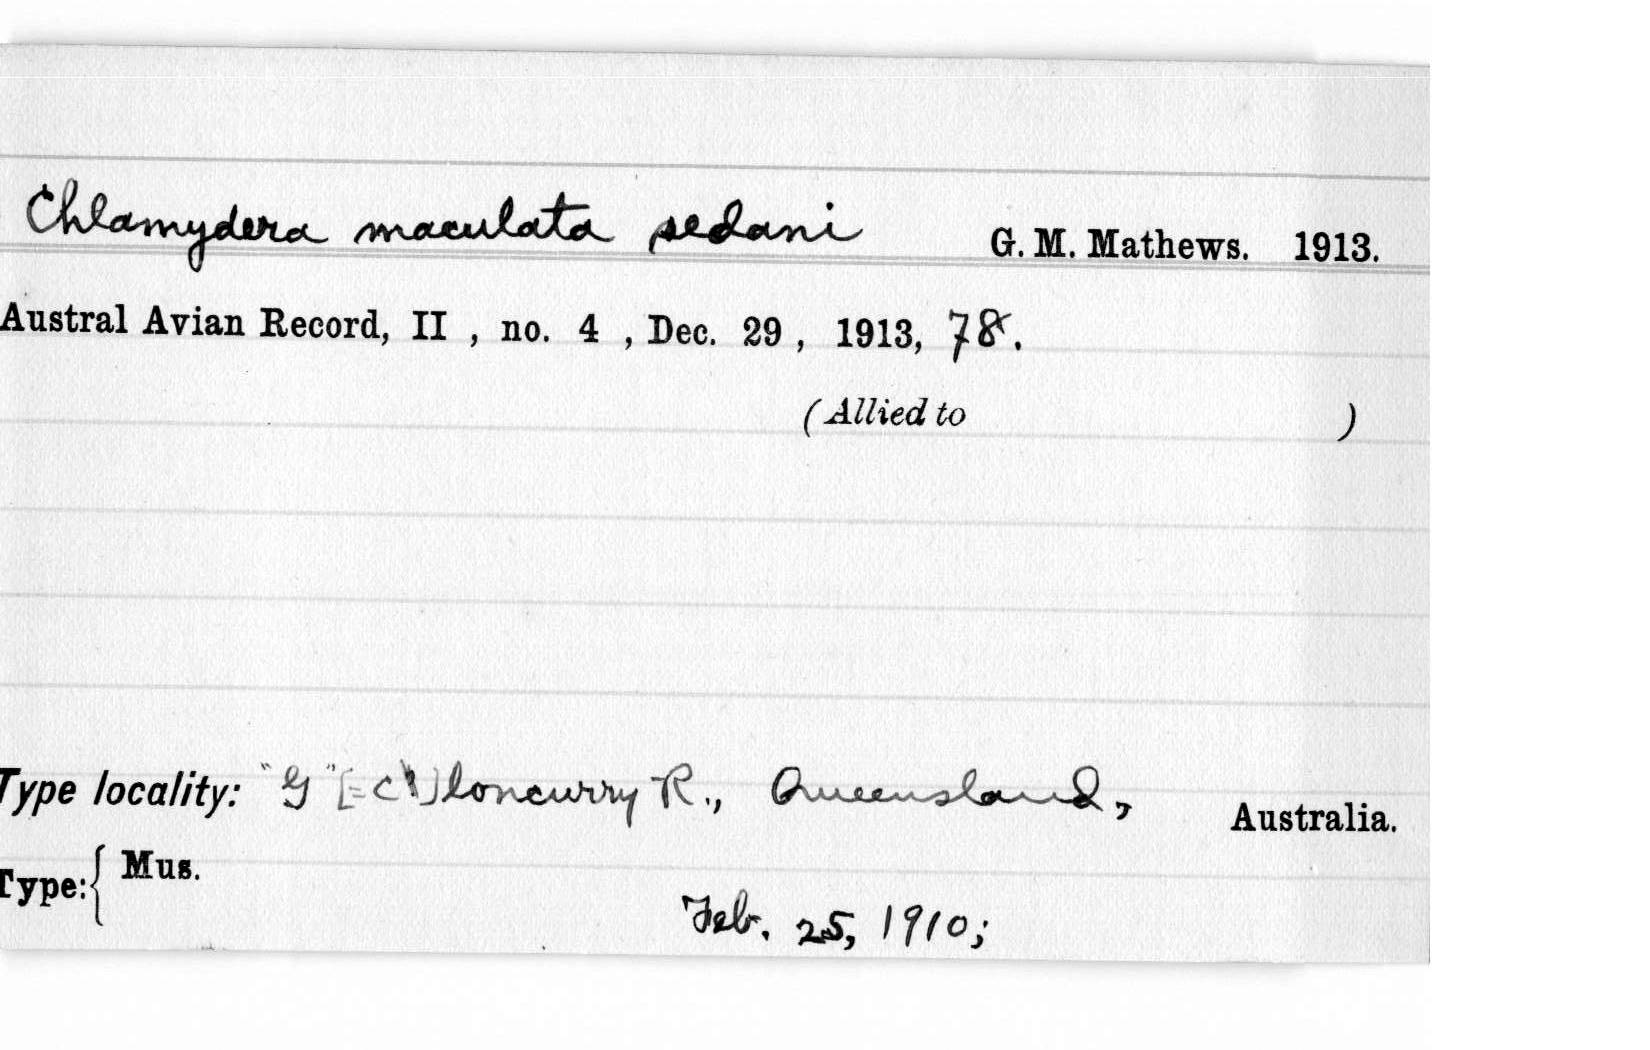 Chlamydera maculata sedani G. M. Mathews. 1913.
Austral Avian Record, II , no. 4 , Dec. 29 , 1913, 78.
(Allied to )
Type locality: "G" [=C!]loncurry R., Queensland, Australia.
Type: { Mus.
Feb. 25, 1910;